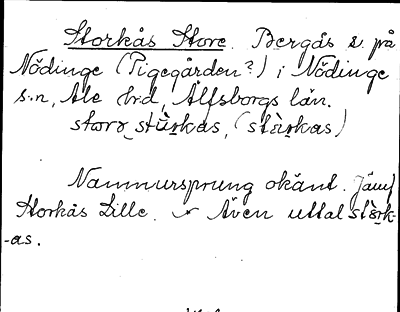 Storkås Store. Bergås S. på
Nödinge (Pigegården?) i Nödinge
s:n, Ale hrd, Älfsborgs län.
storə stùrkas, (stùrkas)
Namnursprung okänt. Jämf
Storkås Lille. Även uttal stòrk-
-as.